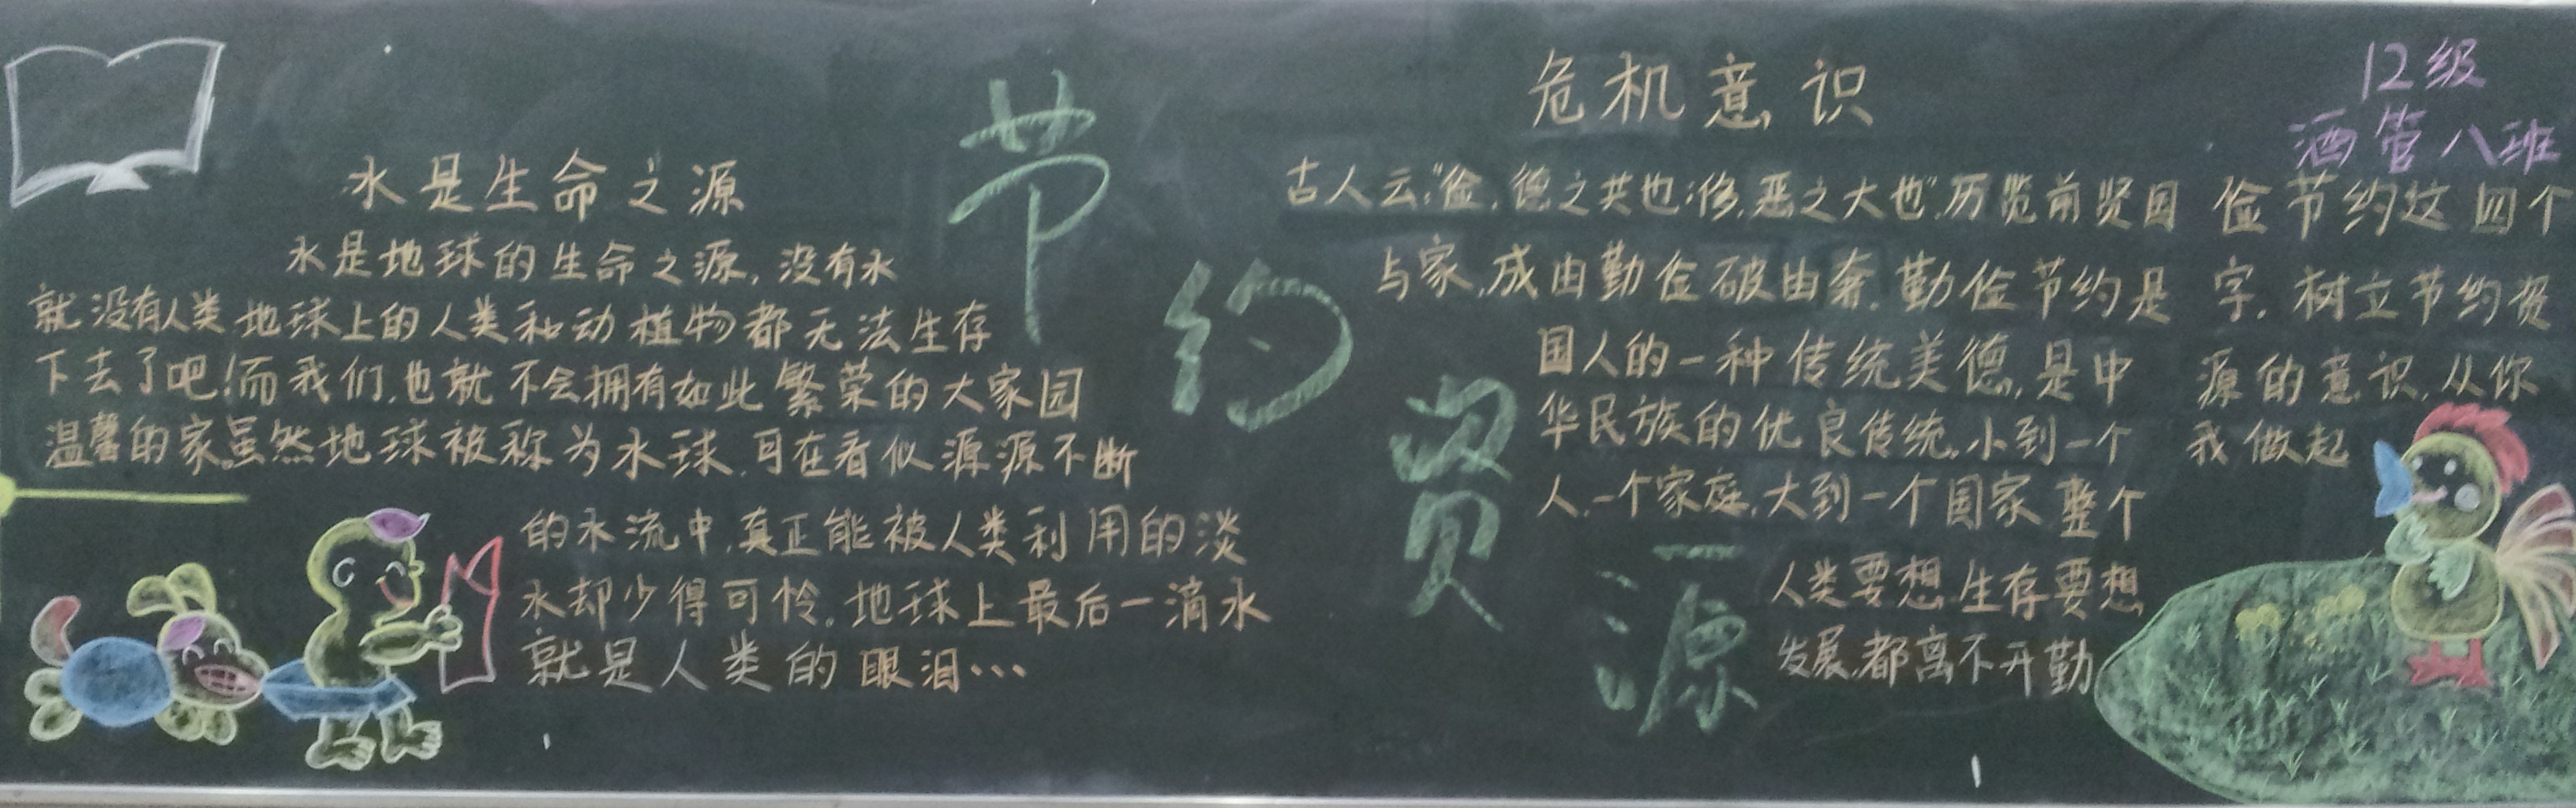 水是生命之源
水是地球的生命之源，没有水
就没有人类地球上的人类和动植物都无法生存
下去了吧！而我们，也就不会拥有如此繁荣的大家园
温馨的家。虽然地球被称为水球，可在看似源源不断
的水流中，真正能被人类利用的淡
水却少得可怜，地球上最后一滴水
就是人类的眼泪…
节约资源
危机意识
古人云：“俭，德之共也；侈，恶之大也”，历览前贤国
与家，成由勤俭破由奢，勤俭节约是
国人的一种传统美德，是中
华民族的优良传统，小到一个
人，一个家庭，大到一个国家 整个
人类要想生存要想
发展，都离不开勤
俭节约这四个
字，树立节约资
源的意识，从你
我做起
12级
酒管八班